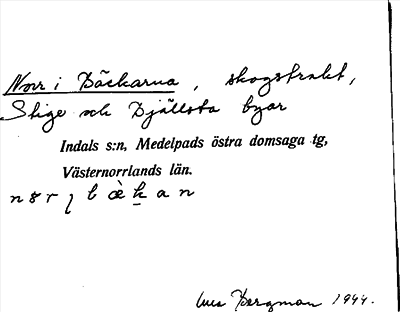 Norr i Bäckarna, skogstrakt,
Stige och Bjällsta byar
Indals s:n, Medelpads östra domsaga tg,
Västernorrlands län.
Bergman 1944.